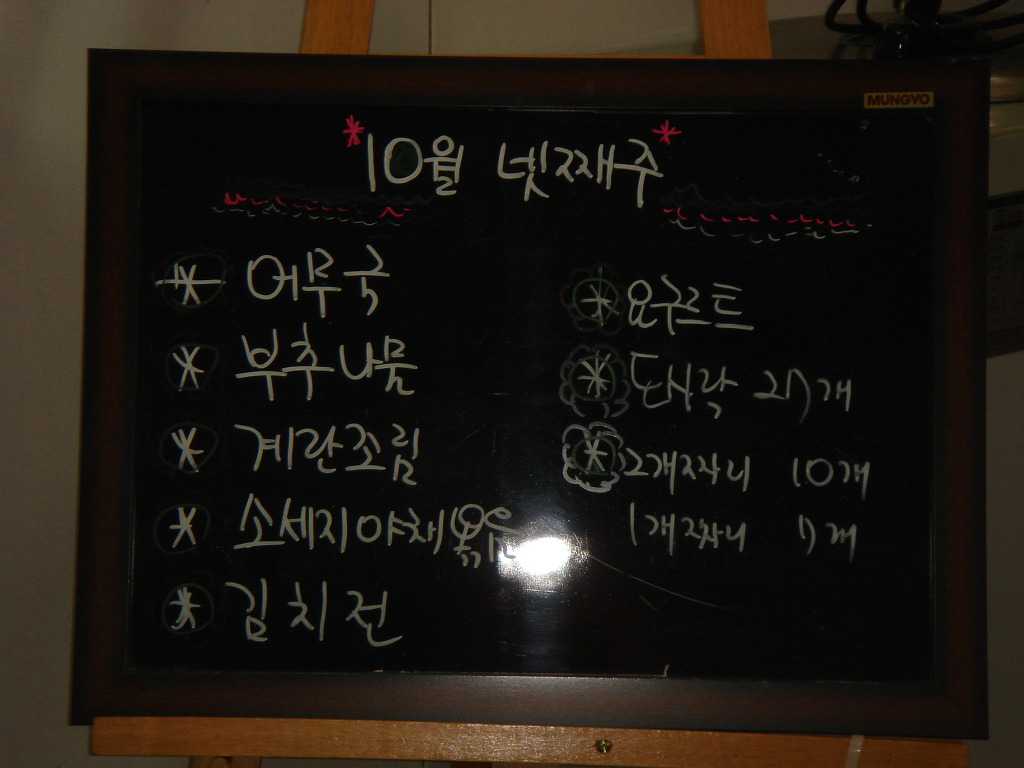 MUNGYO
*10월 넷째주*
* 어무국
* 부추나물
* 계란조림
* 소세지야채볶음
* 김치전
* 요구르트
* 도시락 27개
* 2개짜리 10개
1개짜리 7개